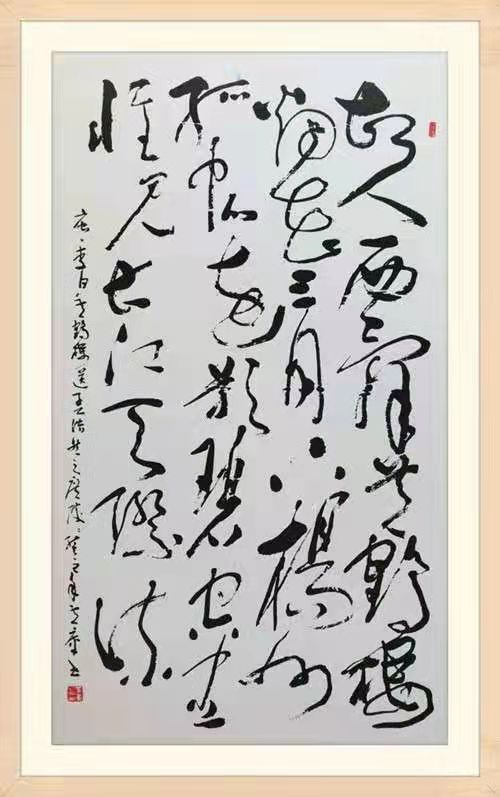 故人西辭黄鶴樓
煙花三月下楊州
孤帆遠影碧空尽
惟見長江天際流
唐李白黄鶴樓送孟浩然之廣陵 癸卯年 書